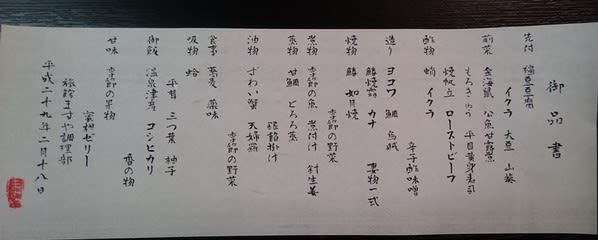 御品書
先付 福豆豆腐
イクラ 大豆 山葵
前菜 金海鼠 公魚甘露煮
もろきゅう 平目黄身寿司
焼帆立 ローストビーフ
酢物 蛸 イクラ
辛子酢味噌
造り ヨコワ 鯛 烏賊
妻物一式
焼物 鰆 如月焼
季節の野菜
煮物 季節の魚 煮付け 針生姜
蒸物 甘鯛 とろろ蒸
銀餡掛け
油物 ずわい蟹 天婦羅
季節の野菜
食事 蕎麦 薬味
吸物 蛤
平茸 三つ葉 柚子
御飯 温泉津産 コシヒカリ
香の物
甘味 季節の果物
蜜柑ゼリー
旅館ますや調理部
平成二十九年二月十八日